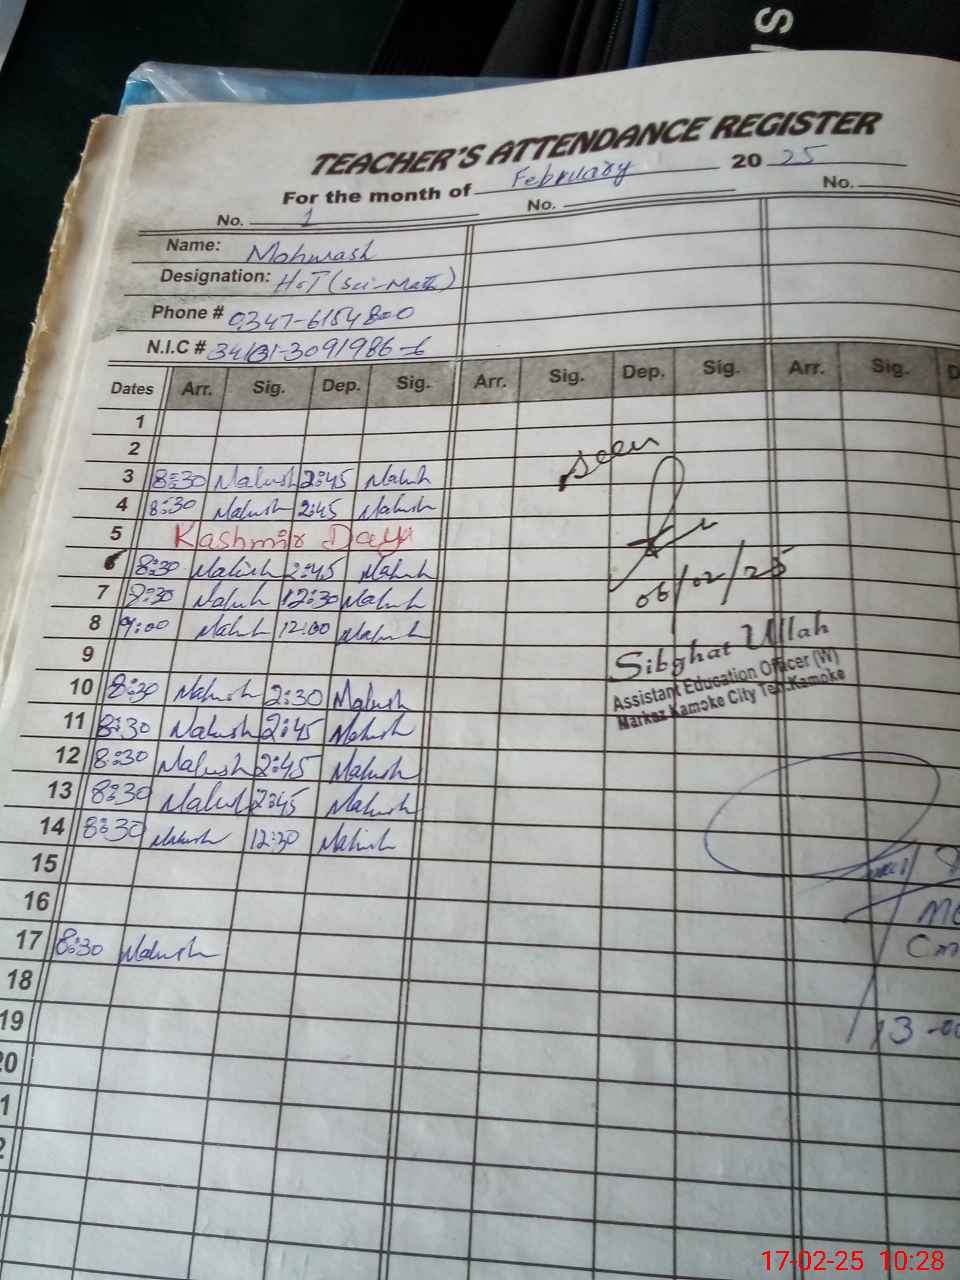 TEACHER'S ATTENDANCE REGISTER
For the month of February 2025
No. 1 No. No.
Name: Mahwash
Designation: H.T (Sci-Math)
Phone # 0347-6154800
N.I.C #
Dates Arr. Sig. Dep. Sig. Arr. Sig. Dep. Sig. Arr. Sig. D
1
2
3 8:30 Mahwash 2:45 Mahwash
4 8:30 Mahwash 2:45 Mahwash
5 Kashmir Day
6 8:30 Mahwash 2:45 Mahwash
7 8:30 Mahwash 12:30 Mahwash
8 9:00 Mahwash 12:00 Mahwash
9
10 8:30 Mahwash 2:30 Mahwash
11 8:30 Mahwash 2:45 Mahwash
12 8:30 Mahwash 2:45 Mahwash
13 8:30 Mahwash 2:45 Mahwash
14 8:30 Mahwash 12:30 Mahwash
15
16
17 8:30 Mahwash
18
19
20
1
2
seen
06/02/25
Sibghat Ullah
Assistant Education Officer (W)
Markaz Kamoke City Teh: Kamoke
13
17-02-25 10:28